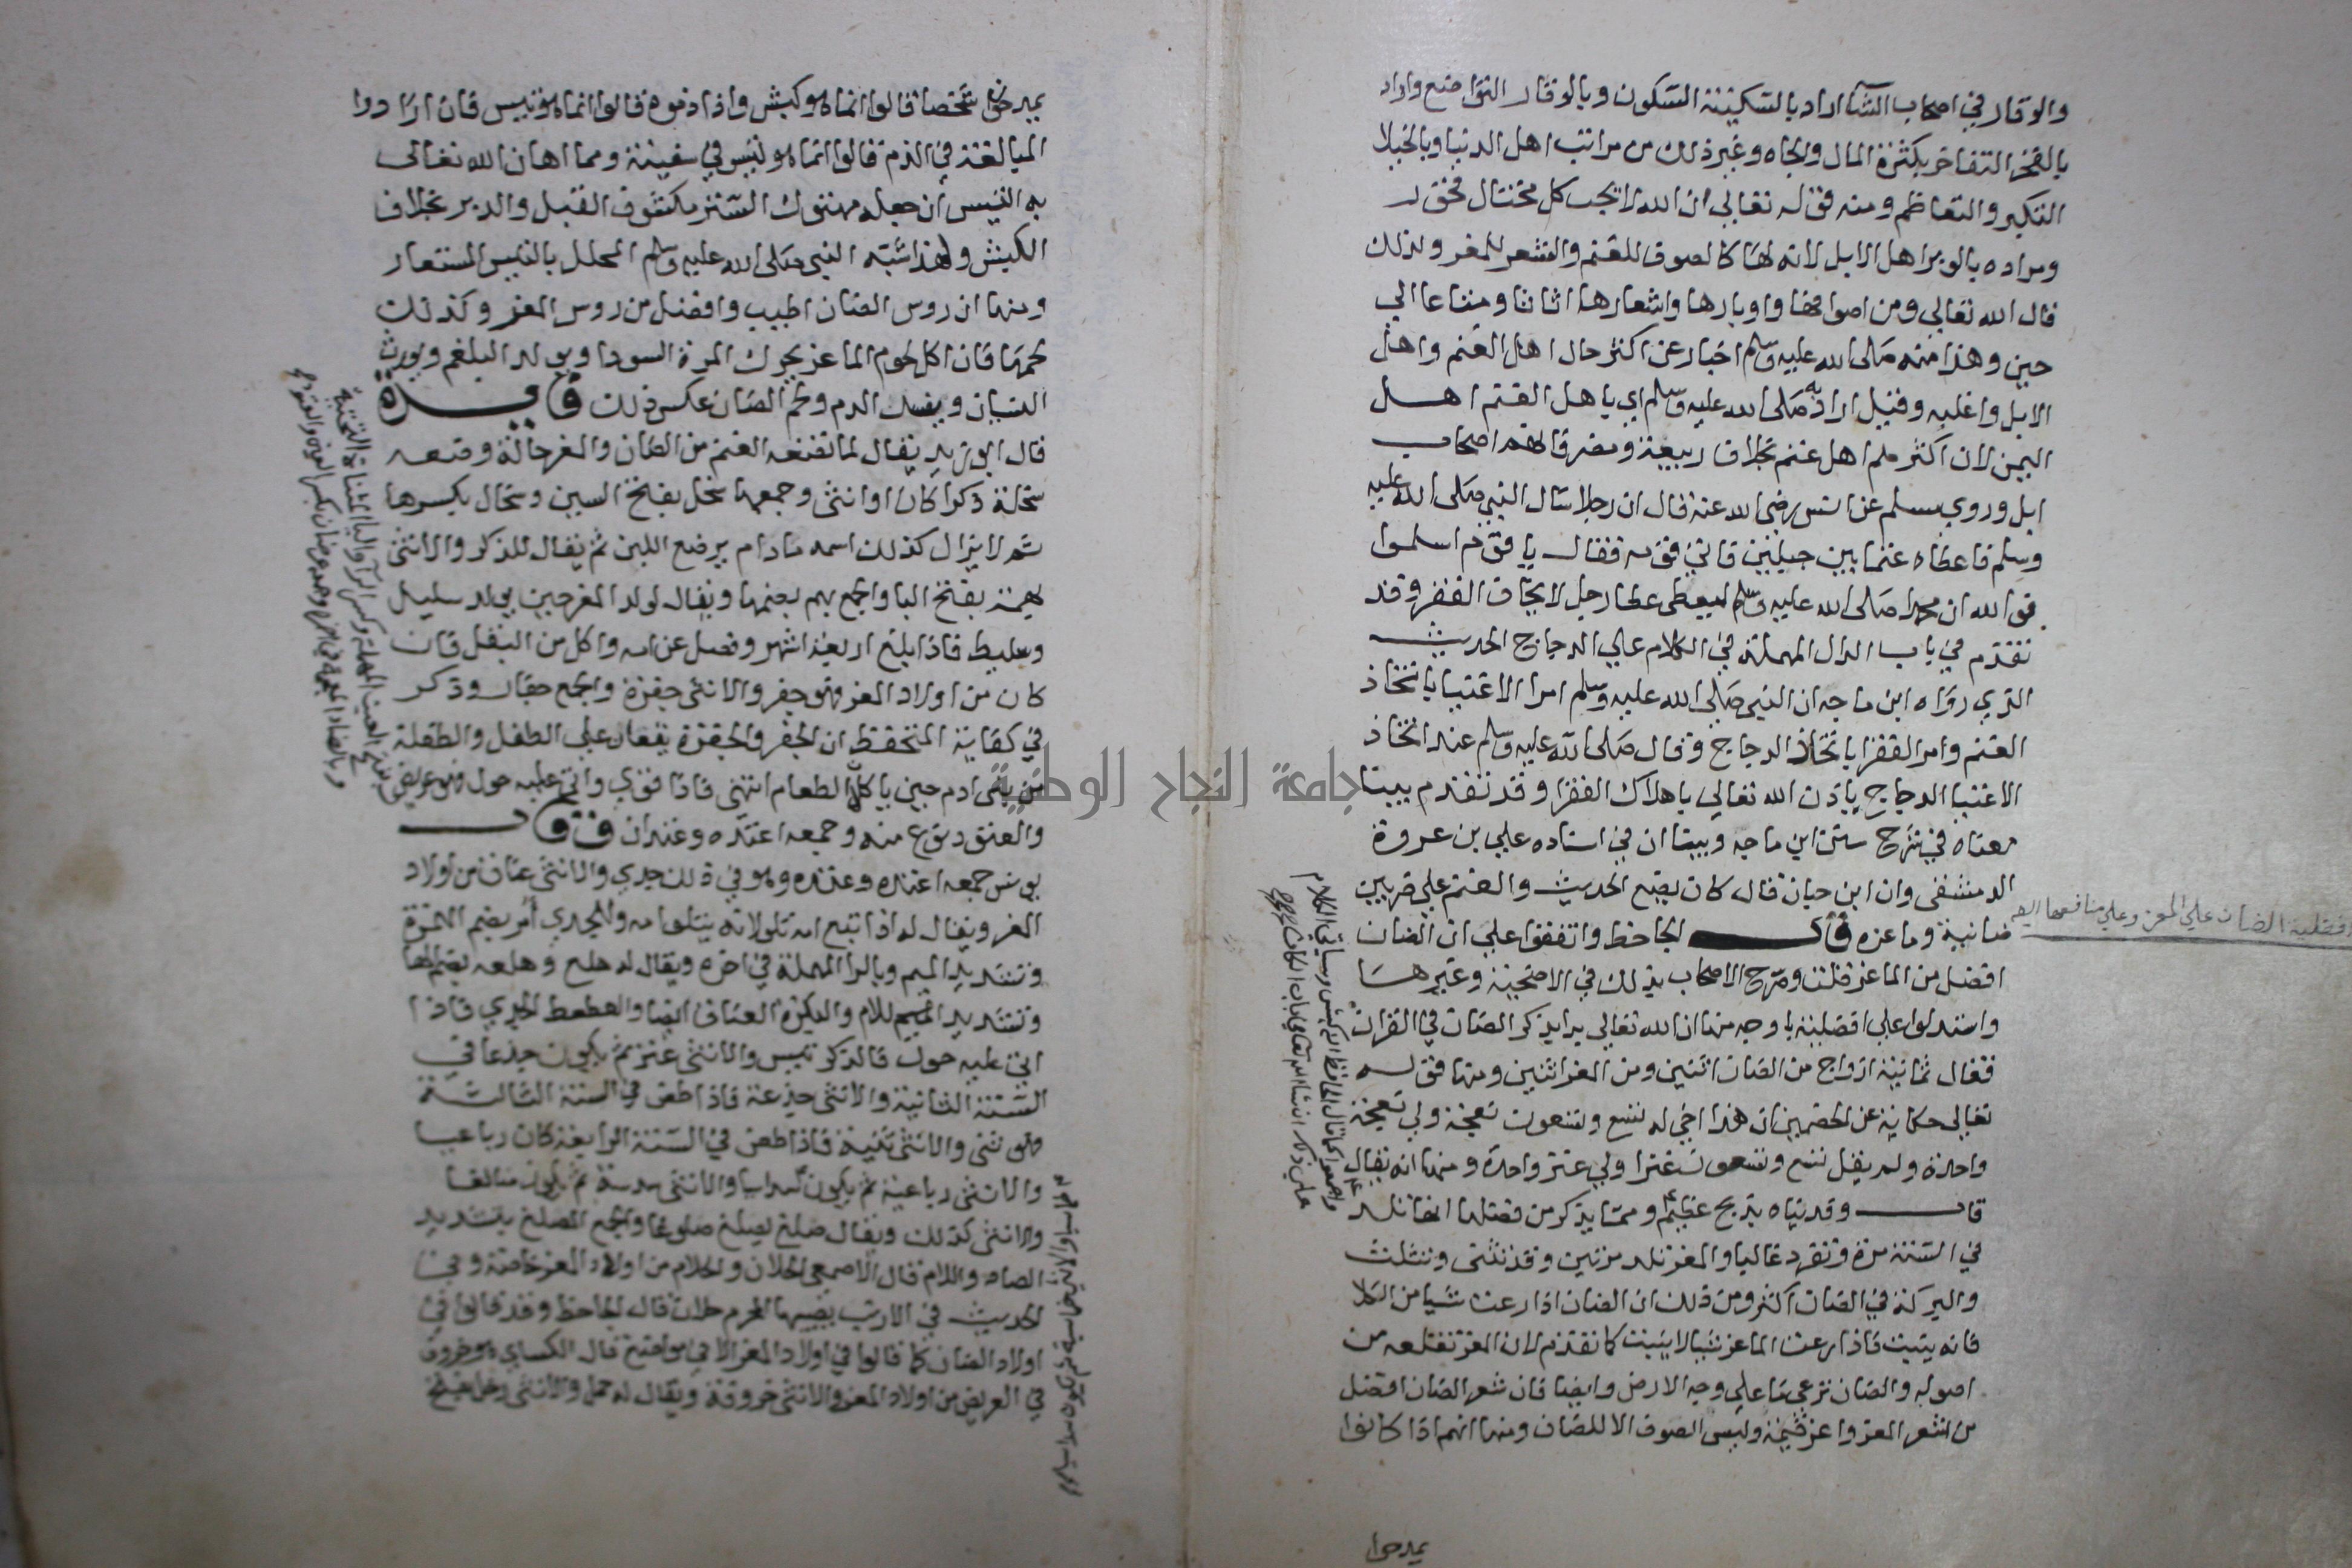 والوقار في اصحاب الشاء اراد بالسكينة السكون وبالوقار التواضع واراد
بالفخر التفاخر بكثرة المال والجاه وغير ذلك من مراتب اهل الدنيا وبالخيلا
التكبر والتعاظم ومنه قوله تعالي ان الله لا يحب كل مختال فخور
ومراده بالوبر اهل الابل لانه لها كالصوف للغنم والشعر للمعز ولذلك
قال الله تعالي ومن اصوافها واوبارها واشعارها اثاثا ومتاعا الي
حين وهذا منه صلى الله عليه وسلم اخبار عن اكثر حال اهل الغنم واهل
الابل واغلبه وقيل اراد به صلى الله عليه وسلم اي باهل الغنم اهل
اليمن لان اكثرهم اهل غنم بخلاف ربيعة ومضر فانهم اصحاب
ابل وروي مسلم عن انس رضي الله عنه قال ان رجلا سال النبي صلى الله عليه
وسلم فاعطاه غنما بين جبلين فاتي قومه فقال يا قوم اسلموا
فوالله ان محمدا صلى الله عليه وسلم ليعطي عطا رجل لا يخاف الفقر وقد
تقدم في باب الدال المهملة في الكلام علي الدجاج الحديث
الذي رواه ابن ماجه ان النبي صلى الله عليه وسلم امر الاغنيا باتخاذ
الغنم وامر الفقرا باتخاذ الدجاج وقال صلى الله عليه وسلم عند اتخاذ
الاغنيا الدجاج ياذن الله تعالي باهلاك الفقرا وقد تقدم بينا
معناه في شرح سنن ابن ماجه وبينا ان في اسناده علي بن عروة
الدمشقي وان ابن حبان قال كان يضع الحديث والغنم علي ضربين
ضانية وماعزه قال الجاحظ واتفقوا علي ان الضان
افضل من الماعز قلت وصرح الاصحاب بذلك في الاضحية وغيرها
واستدلوا علي افضليته باوجه منها ان الله تعالي بدا بذكر الضان في القران
فقال ثمانية ازواج من الضان اثنين ومن المعز اثنين ومنها قوله
تعالي حكاية عن الخصمين ان هذا اخي له تسع وتسعون نعجة ولي نعجة
واحدة ولم يقل تسع وتسعون عنزا ولي عنز واحدة ومنها انه تعالي
قال وفديناه بذبح عظيم ومما يذكر من فضلها انها تلد
في السنة مرة وتفرد غالبا والمعز تلد مرتين وقد تثني وتثلث
والبركة في الضان اكثر ومن ذلك ان الضان اذا رعت شيا من الكلا
فانه ينبت فاذا رعت الماعز شيا لا ينبت كما تقدم لان المعز تقلعه من
اصوله والضان ترعي ما علي وجه الارض وايضا فان شعر الضان افضل
من شعر المعز واعز قيمة وليس الصوف الا للضان ومنها انهم اذا كانوا
يمدحوا
افضلية الضان علي المعز وعلي منافعها
يمدحون شخصا قالوا انما هو كبش واذا ذموه قالوا انما هو تيس فان ارادوا
المبالغة في الذم قالوا انما هو تيس في سفينة ومما اهان الله تعالى
به التيس أن جعله مهتوك الستر مكشوف القبل والدبر بخلاف
الكبش ولهذا شبه النبي صلى الله عليه وسلم المحلل بالتيس المستعار
ومنها ان روس الضان اطيب وافضل من روس المعز وكذلك
لحمها فان اكل لحوم الماعز يحرك المرة السودا ويولد البلغم ويورث
النسيان ويفسد الدم ولحم الضان عكس ذلك فايدة
قال ابو زيد يقال لما تضعه الغنم من الضان والمعز حالة وضعه
سخلة ذكرا كان او انثى وجمعها سخل بفتح السين وسخال بكسرها
ثم لا يزال كذلك اسمه مادام يرضع اللبن ثم يقال للذكر والانثى
بهمة بفتح البا والجمع بهم بضمها ويقال لولد المعز حين يولد سليل
وسليط فاذا بلغ اربعة اشهر وفصل عن امه واكل من البقل فان
كان من اولاد المعز فهو جفر والانثى جفرة والجمع جفار وذكر
في كفاية المتحفظ ان الجفر والجفرة يقعان علي الطفل والطفلة
من بني ادم حين ياكل الطعام انتهى فاذا قوي واتي عليه حول فهو عريض
والعتق دنوع منه وجمعه اعتده وعتدان وقال
يونس جمعه اعتده وعتده وهو في ذلك جدي والانثى عناق من اولاد
المعز ويقال له اذا تبع امه تلو لانه يتلو امه والجدي أمر بضم الهمزة
وتشديد الميم وبالرا المهملة في اخره ويقال له هلع وهلعه بضم الها
وتشديد اللام والبكرة العناق ايضا والعطعط الجدي فاذا
اتي عليه حول فالذكر تيس والانثى عنز ثم يكون جذعا في
السنة الثانية والانثى جذعة فاذا طعن في السنة الثالثة
فهو ثني والانثى ثنية فاذا طعن في السنة الرابعة كان رباعيا
والانثى رباعية ثم يكون سدسا والانثى سدسة ثم يكون ضالعا
والانثى كذلك ويقال ضلع يصلغ صلوغا والجمع الصلغ بتشديد
الصاد واللام قال الاصمعي الحلان والحلام من اولاد المعز خاصة وفي
الحديث في الارنب يصيبها المحرم حلان قال الجاحظ وقد قالوا في
اولاد الضان كما قالوا في اولاد المعز الا في مواضع قال الكساي هو خروف
في العريض من اولاد المعز والانثى خروفة ويقال له حمل والانثى رخل بفتح
جامعة النجاح الوطنية